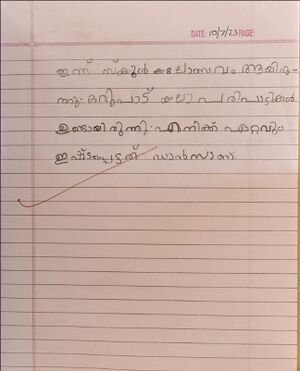 DATE: 10/7/23 PAGE:
ഇന്ന് സ്കൂൾ കലോത്സവം ആയിരു-
ന്നു. ഒരുപാട് കലാ പരിപാട്ടികൾ
ഉണ്ടായിരുന്നു. എനിക്ക് ഏറ്റവും
ഇഷ്ടപ്പെട്ടത് ഡാൻസാണ്.